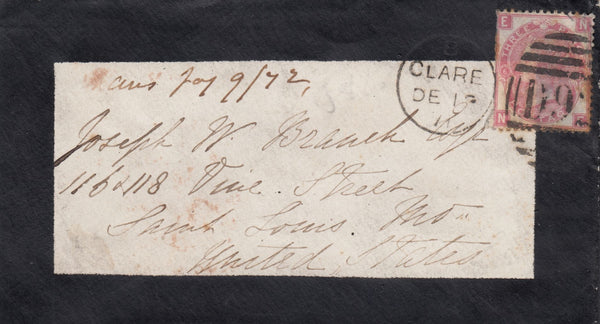 9/72,
Joseph W. Branch Esqr
116 & 118 Vine Street
Saint Louis Mo
United States
CLARE
DE 1
E N
THREE
N